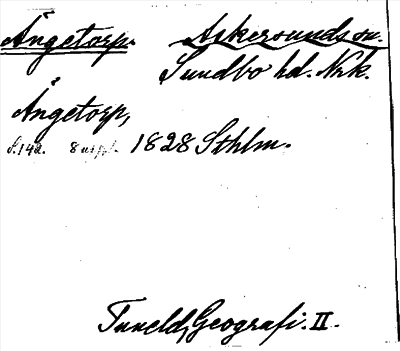 Ängetorp. Askersunds sn.
Sundbo hd. Nrk.
Ängetorp,
S. 142. 8 uppl. 1828 Sthlm.
Tuneld, Geografi. II.